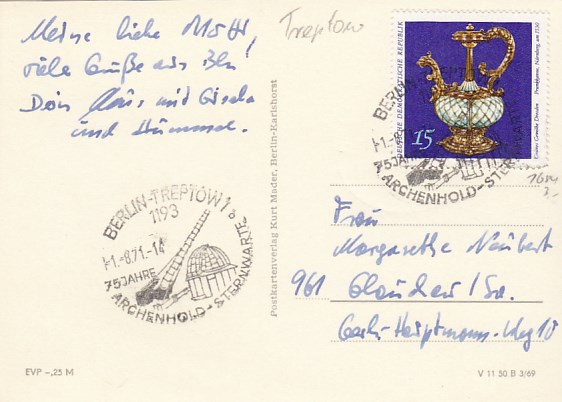 Meine liebe Mutti,
viele Grüße aus Bln
Dein Claus und Gisela
und Hümmel.
Treptow
DEUTSCHE DEMOKRATISCHE REPUBLIK
15
Grünes Gewölbe Dresden
Prunkkanne, Nürnberg, um 1530
BERLIN-TREPTOW 1
1193
-1.-8.71.-14
75 JAHRE
ARCHENHOLD-STERNWARTE
b
BERLIN-TREPT
-1.-8.
75 JAHRE
ARCHENHOLD-STERNWARTE
Postkartenverlag Kurt Mader, Berlin-Karlshorst
Frau
Margarethe Neubert
961 Glauchau / Sa.
Gerh.-Hauptmann-Weg 10
EVP -,25 M
V 11 50 B 3/69